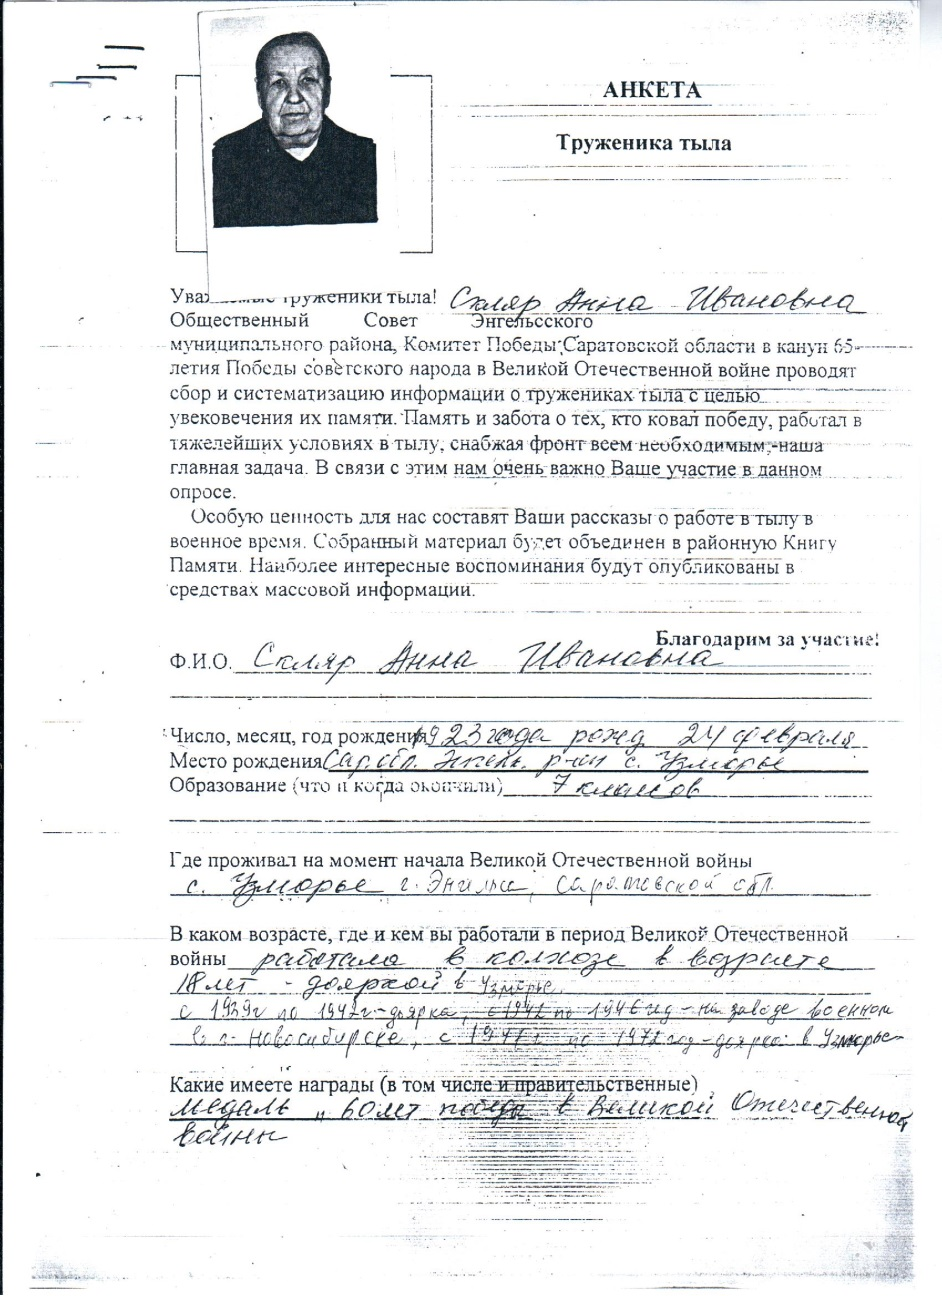 АНКЕТА
Труженика тыла
Уважаемые труженики тыла! Скляр Анна Ивановна
Общественный Совет Энгельсского
муниципального района, Комитет Победы Саратовской области в канун 65-
летия Победы советского народа в Великой Отечественной войне проводят
сбор и систематизацию информации о тружениках тыла с целью
увековечения их памяти. Память и забота о тех, кто ковал победу, работал в
тяжелейших условиях в тылу, снабжая фронт всем необходимым,-наша
главная задача. В связи с этим нам очень важно Ваше участие в данном
опросе.
Особую ценность для нас составят Ваши рассказы о работе в тылу в
военное время. Собранный материал будет объединен в районную Книгу
Памяти. Наиболее интересные воспоминания будут опубликованы в
средствах массовой информации.
Благодарим за участие!
Ф.И.О. Скляр Анна Ивановна
Число, месяц, год рождения 1923 года рожд 24 февраля
Место рождения Сар.обл. Энгель. р-он с. Узморье
Образование (что и когда окончили) 7 классов
Где проживал на момент начала Великой Отечественной войны
с. Узморье г. Энгельса, Саратовской обл.
В каком возрасте, где и кем вы работали в период Великой Отечественной
войны работала в колхозе в возрасте
18 лет - дояркой в Узморье
с 1939г по 1942г-доярка, с 1942 по 1946 год - на заводе военном
в г. Новосибирске, с 1947г по 1972 год-доярка в Узморье
Какие имеете награды (в том числе и правительственные)
Медаль „60 лет победы в Великой Отечественной
войны